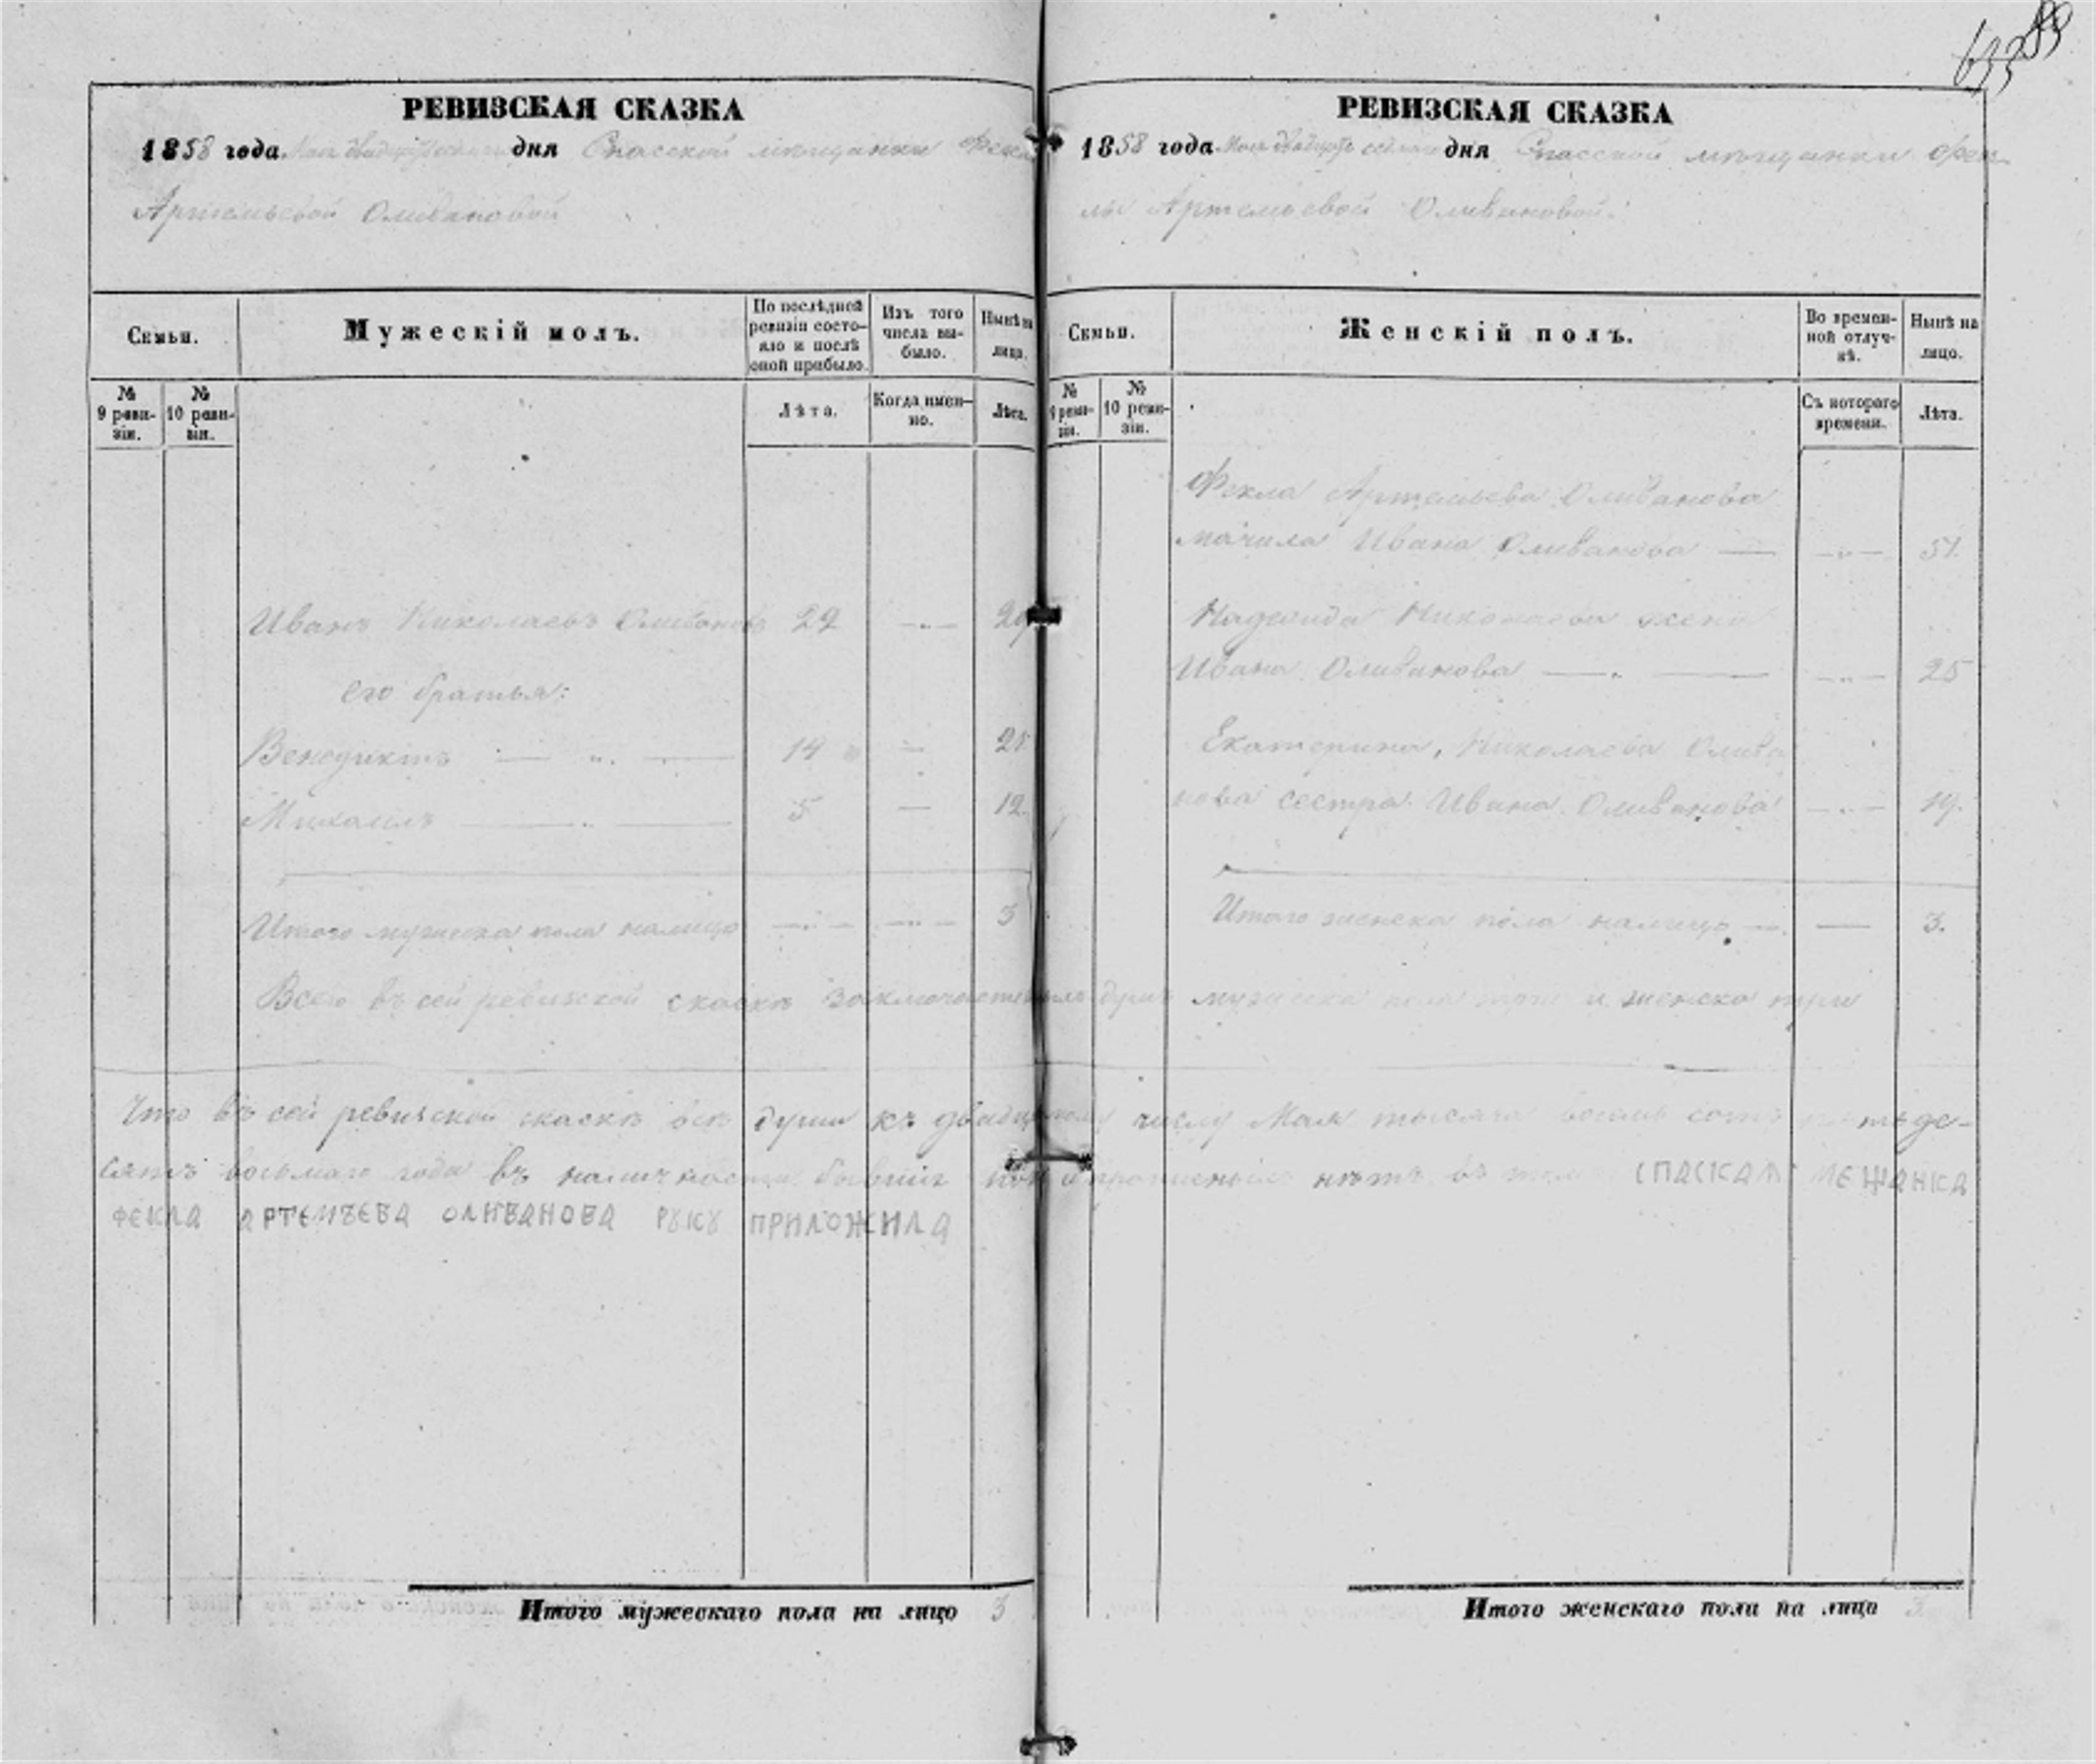 РЕВИЗСКАЯ СКАЗКА
1858 года Мая дня Спасской мѣщанки Феклы
Артемьевой Оливановой
Семьи.
Мужескій полъ.
По послѣдней ревизіи состояло и послѣ оной прибыло.
Изъ того числа выбыло.
Нынѣ на лицо.
№ 9 ревизіи.
№ 10 ревизіи.
Лѣта.
Когда именно.
Лѣта.
Иванъ Николаевъ Оливановъ 22 —„— 29
его братья:
Венедиктъ — „ — 14 — 21
Михаилъ — „ — 5 — 12
Итого мужеска пола налицо —„— —„— 3
Итого мужескаго пола на лицо 3
РЕВИЗСКАЯ СКАЗКА
1858 года Мая дня Спасской мѣщанки Фек-
лы Артемьевой Оливановой.
Семьи.
Женскій полъ.
Во временной отлучкѣ.
Нынѣ на лицо.
№ 9 ревизіи.
№ 10 ревизіи.
Съ котораго времени.
Лѣта.
Фекла Артемьева Оливанова
мачиха Ивана Оливанова — —„— 51.
Надежда Николаева жена
Ивана Оливанова — „ — —„— 25
Екатерина Николаева Олива
нова сестра Ивана Оливанова —„— 19.
Итого женска пола налицо — — 3.
Всего въ сей ревизской сказкѣ заключается душъ мужеска пола три и женска три
Что въ сей ревизской сказкѣ всѣ души къ числу Мая тысяча восемь сотъ пятьде-
сятъ восьмаго года въ наличности бывшіе и пропущенныхъ нѣтъ въ томъ СПАСКАЯ МЕЖАНКА
ФЕКЛА АРТЕМЪЕВА ОЛИВАНОВА РУКУ ПРИЛОЖИЛА
Итого женскаго пола на лицо 3